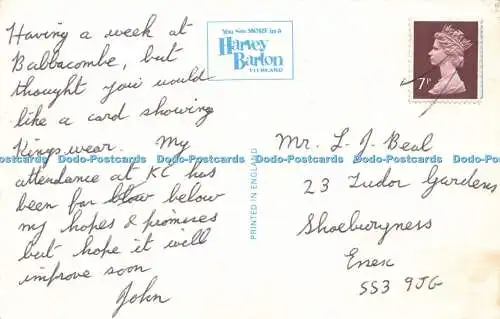 Having a week at
Babbacombe, but
thought you would
like a card showing
Kingswear. My
attendance at KC has
been far blow below
my hopes & promises
but hope it will
improve soon
John
You See MORE in a
Harvey
Barton
VIEWCARD
7P
Mr. L. J. Beal
23 Tudor Gardens
Shoeburyness
Essex
SS3 9JG
PRINTED IN ENGLAND
Dodo-Postcards Dodo-Postcards Dodo-Postcards Dodo-Postcards Dodo-Postcards Dodo-Postcards